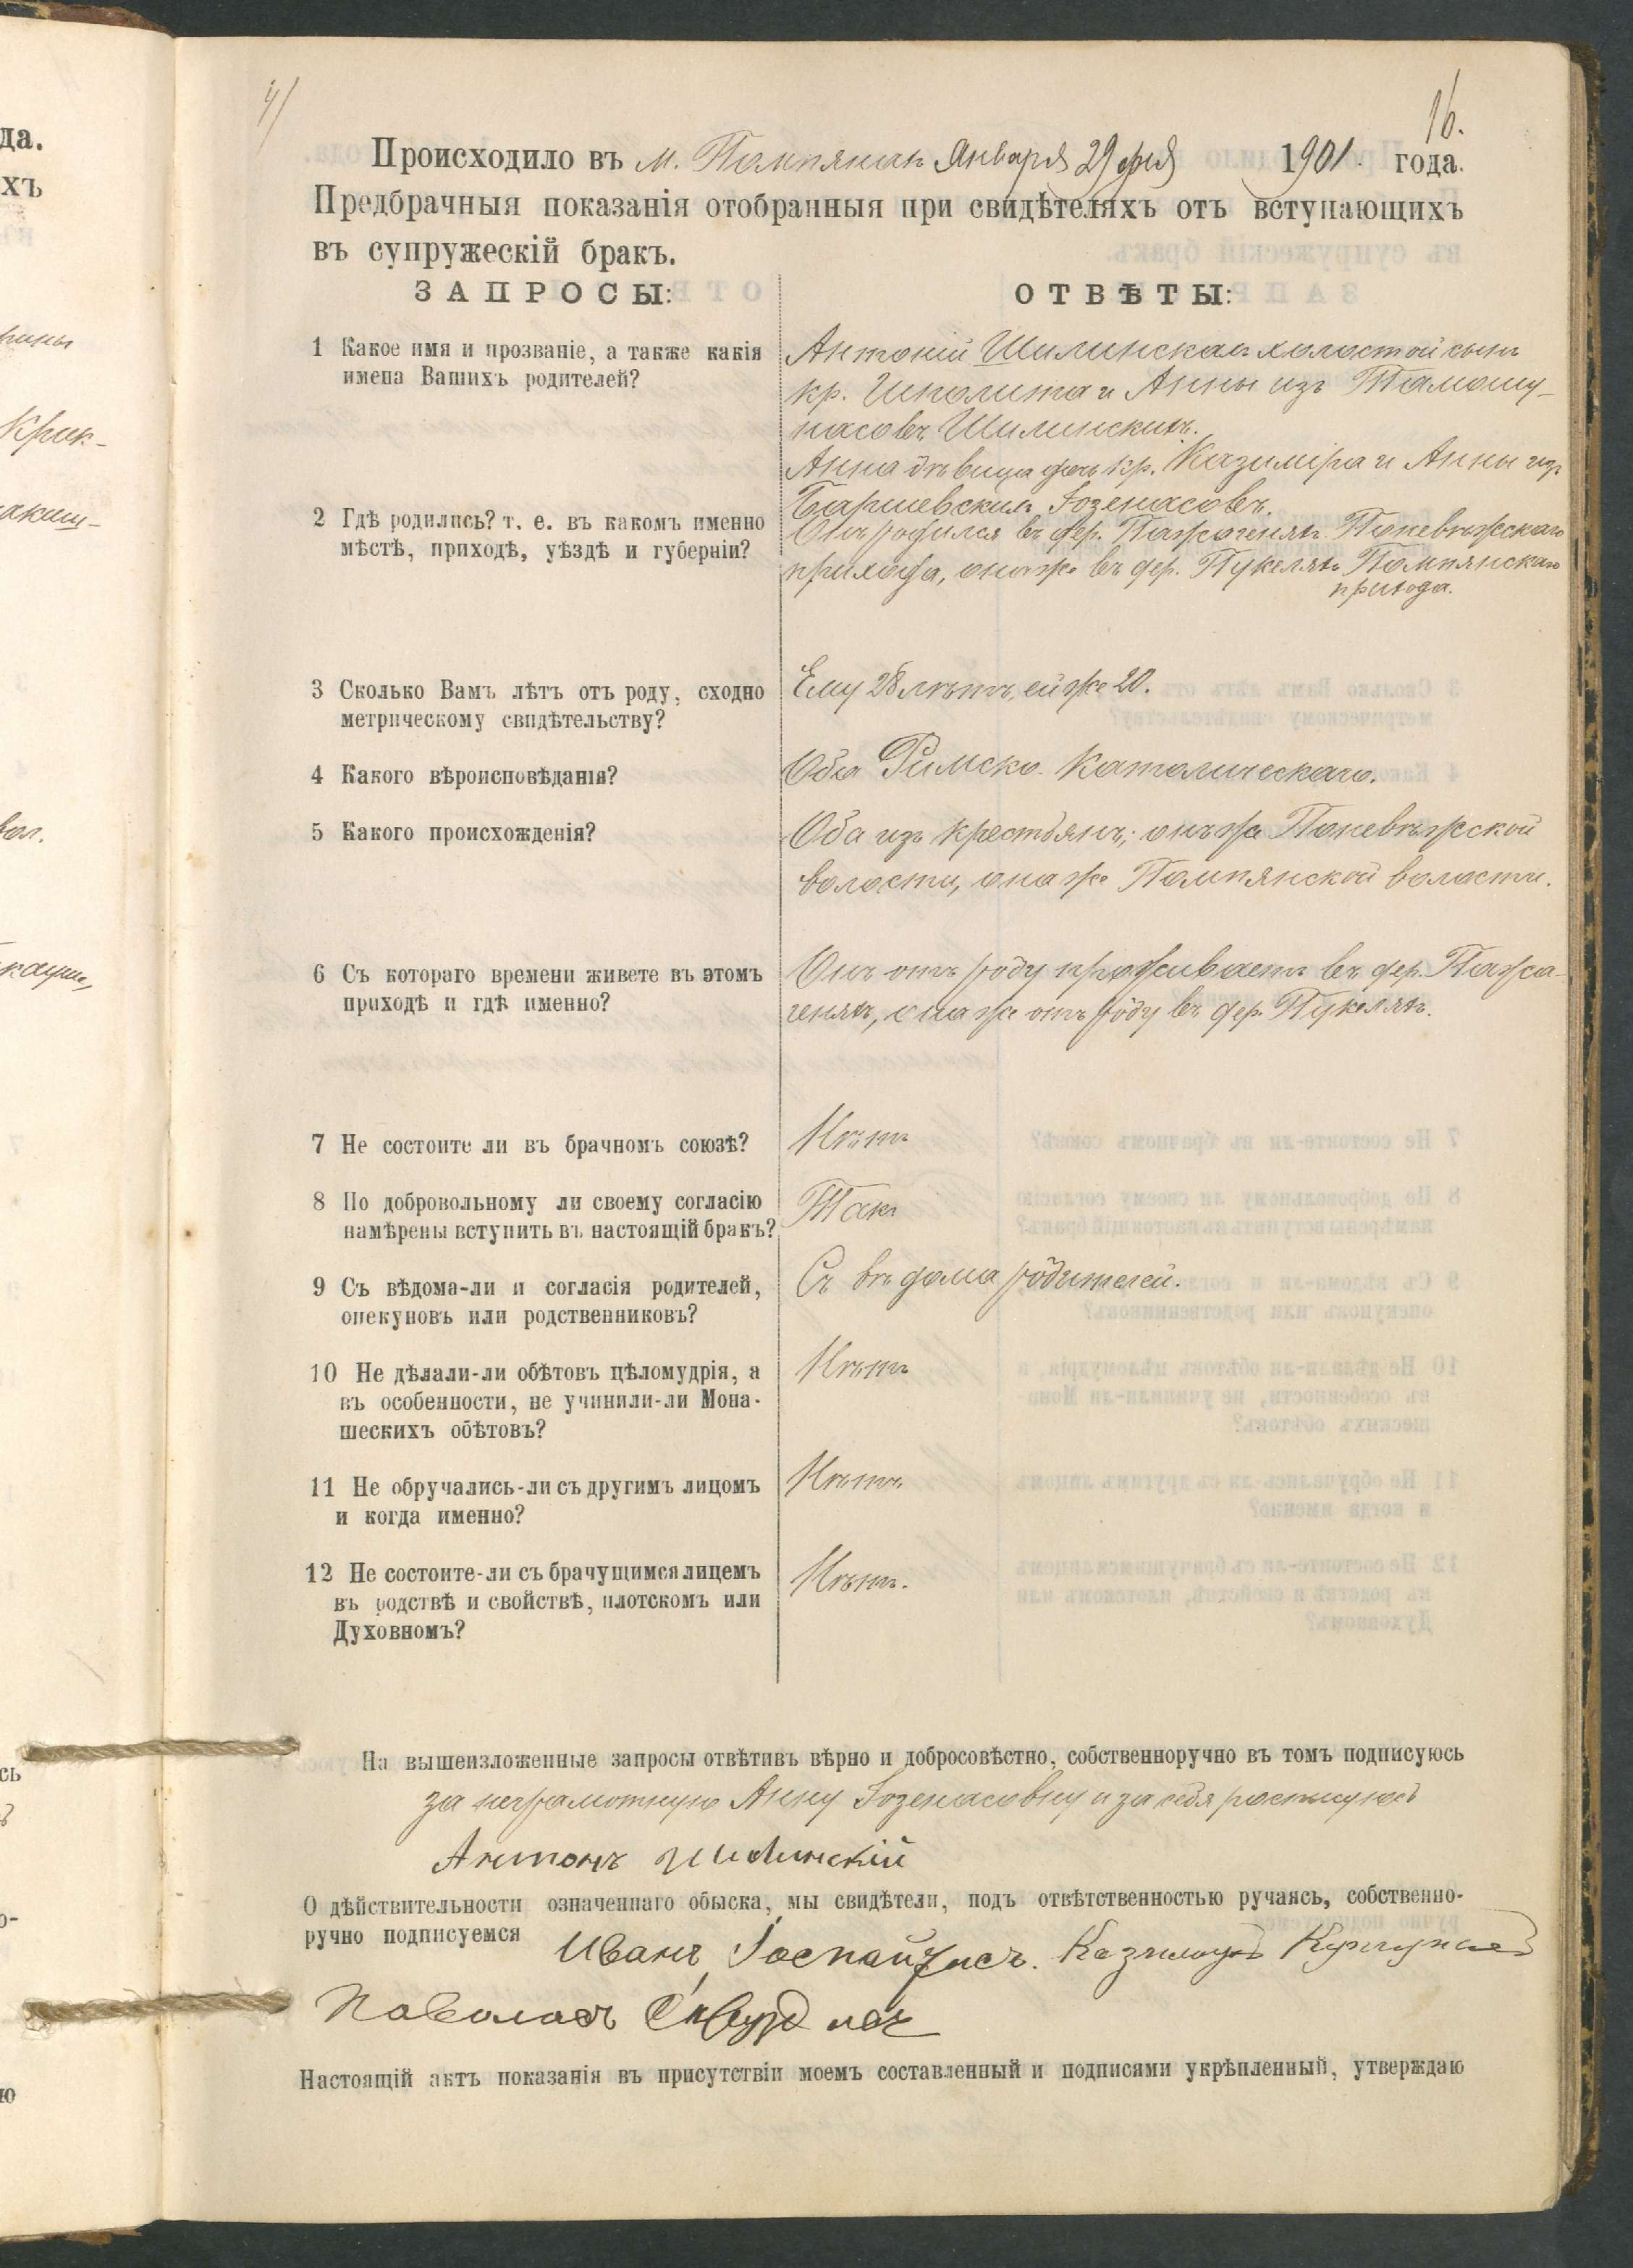 4/
16.
Происходило въ м. Помпянах Января 29 дня 1901. года.
Предбрачныя показанія отобранныя при свидѣтеляхъ отъ вступающихъ
въ супружескій бракъ.
ЗАПРОСЫ:
ОТВѢТЫ:
1 Какое имя и прозваніе, а также какія
имена Вашихъ родителей?
Антоній Шилинскас холостой сынъ
кр. Ипполита и Анны изъ Тамошу-
насовъ Шилинскихъ.
Анна дѣвица дочь кр. Казиміра и Анны изъ
Баршевскихъ Іозенасовъ.
2 Гдѣ родились? т. е. въ какомъ именно
мѣстѣ, приходѣ, уѣздѣ и губерніи?
Онъ родился въ дер. Пажагеняхъ Поневѣжскаго
прихода, она же въ дер. Пукеляхъ Помпянскаго
прихода.
3 Сколько Вамъ лѣтъ отъ роду, сходно
метрическому свидѣтельству?
Ему 28 лѣтъ, ей же 20.
4 Какого вѣроисповѣданія?
Оба Римско-Католическаго.
5 Какого происхожденія?
Оба изъ крестьянъ; онъ же Поневѣжской
волости, она же Помпянской волости.
6 Съ котораго времени живете въ этомъ
приходѣ и гдѣ именно?
Онъ отъ роду проживаетъ въ дер. Пажа-
геняхъ, она же отъ роду въ дер. Пукеляхъ.
7 Не состоите ли въ брачномъ союзѣ?
Нѣтъ
8 По добровольному ли своему согласію
намѣрены вступить въ настоящій бракъ?
Такъ
9 Съ вѣдома-ли и согласія родителей,
опекуновъ или родственниковъ?
Съ вѣдома родителей.
10 Не дѣлали-ли обѣтовъ цѣломудрія, а
въ особенности, не учинили-ли Мона-
шескихъ обѣтовъ?
Нѣтъ
11 Не обручались-ли съ другимъ лицомъ
и когда именно?
Нѣтъ
12 Не состоите-ли съ брачущимся лицемъ
въ родствѣ и свойствѣ, плотскомъ или
Духовномъ?
Нѣтъ.
На вышеизложенные запросы отвѣтивъ вѣрно и добросовѣстно, собственноручно въ томъ подписуюсь
за неграмотную Анну Іозенасовну и за себя роспысуюсь
Антонъ Шилинскій
О дѣйствительности означеннаго обыска, мы свидѣтели, подъ отвѣтственностью ручаясь, собственно-
ручно подписуемся
Иванъ
Поволасъ
Настоящій актъ показанія въ присутствіи моемъ составленный и подписями укрѣпленный, утверждаю